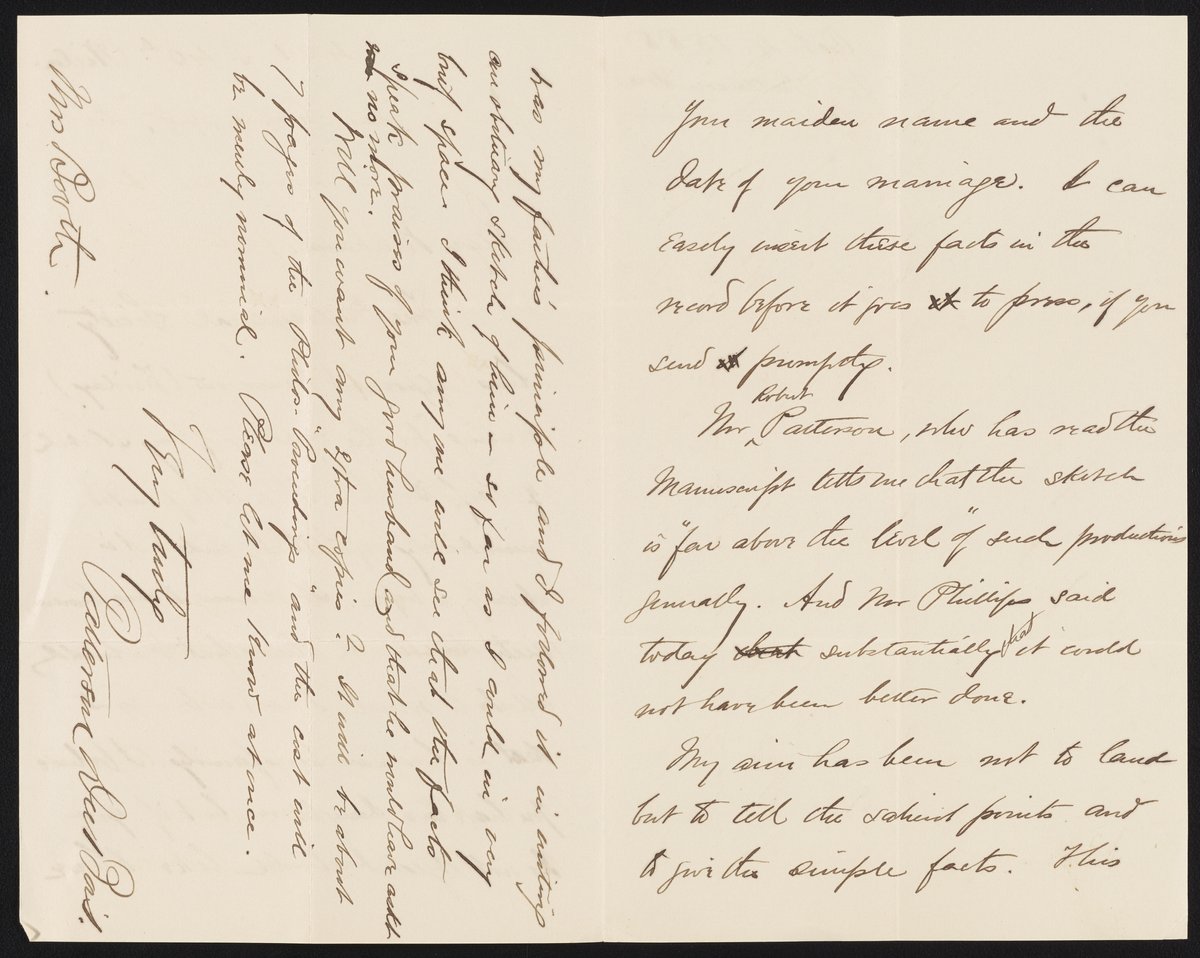 Your maiden name and the
date of your marriage. I can
easily insert these facts in the
record before it goes to press, if you
send promptly.
Robert
Mr Patterson, who has read the
manuscript tells me that the sketch
is "far above the level" of such productions
generally. And Mr Phillips said
today that substantially that it could
not have been better done.
My aim has been not to laud
but to tell the salient points and
to give the simple facts. This
was my father's principle and I followed it in writing
an obituary sketch of him — so far as I could in very
brief space. I think any one will see that the facts
speak praises of your good husband and that he would have asked
no more.
Will you want any extra copies? It will be about
7 pages of the Philos. "Proceedings" and the cost will
be merely nominal. Please let me know at once.
Very truly
Patterson Du Bois.
Mrs. Booth.